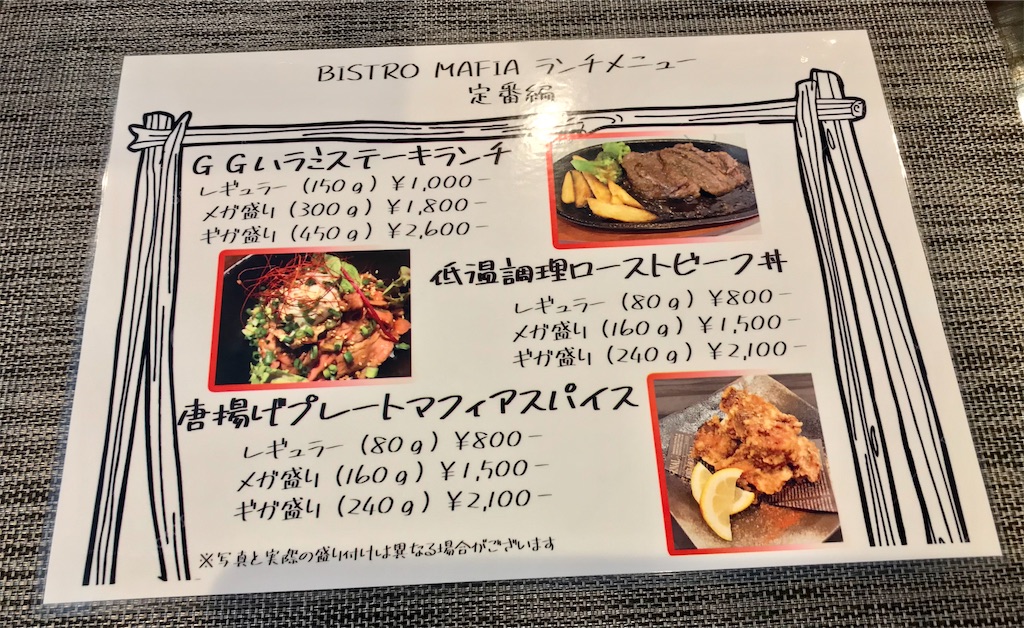 BISTRO MAFIA ランチメニュー
定番編
GGハラミステーキランチ
レギュラー（150g）￥1,000−
メガ盛り（300g）￥1,800−
ギガ盛り（450g）￥2,600−
低温調理ローストビーフ丼
レギュラー（80g）￥800−
メガ盛り（160g）￥1,500−
ギガ盛り（240g）￥2,100−
唐揚げプレートマフィアスパイス
レギュラー（80g）￥800−
メガ盛り（160g）￥1,500−
ギガ盛り（240g）￥2,100−
※写真と実際の盛り付けは異なる場合がございます